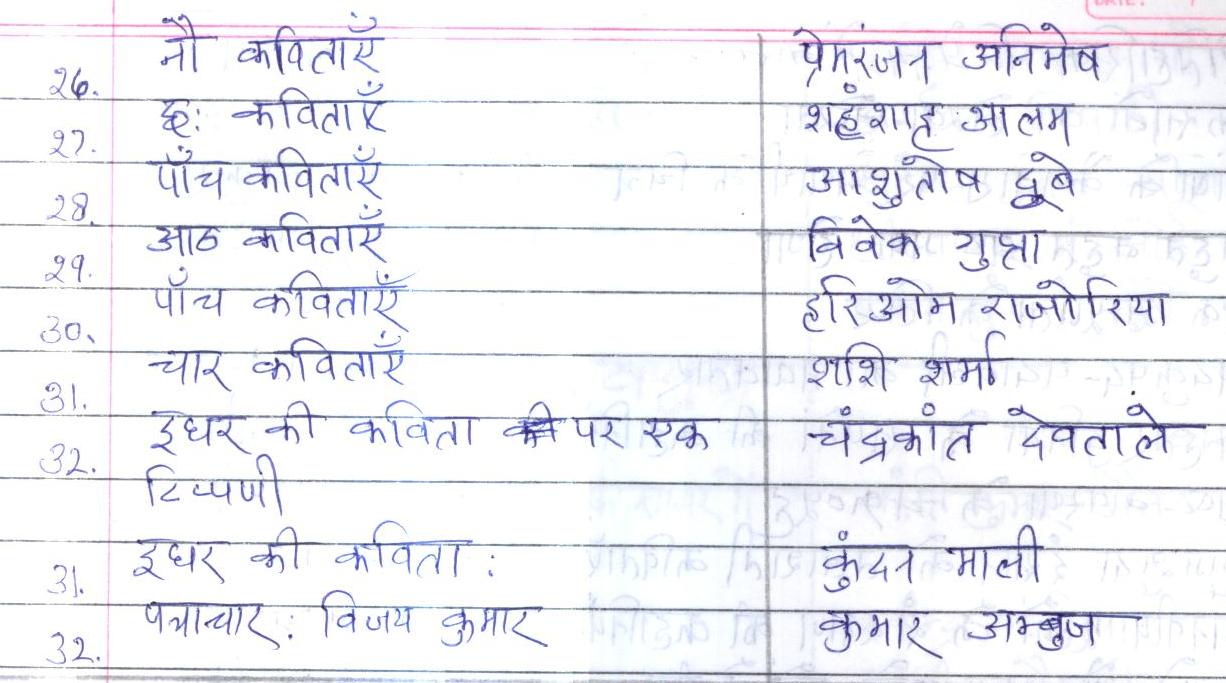 नौ कविताएँ प्रेमरंजन अनिमेष
26. छः कविताएँ शहंशाह आलम
27. पाँच कविताएँ आशुतोष दूबे
28. आठ कविताएँ विवेक गुप्ता
29. पाँच कविताएँ हरिओम राजोरिया
30. चार कविताएँ शशि शर्मा
31. इधर की कविता पर एक चंद्रकांत देवताले
32. टिप्पणी
इधर की कविता : कुंदन माली
31. पत्राचार : विजय कुमार कुमार अम्बुज
32.